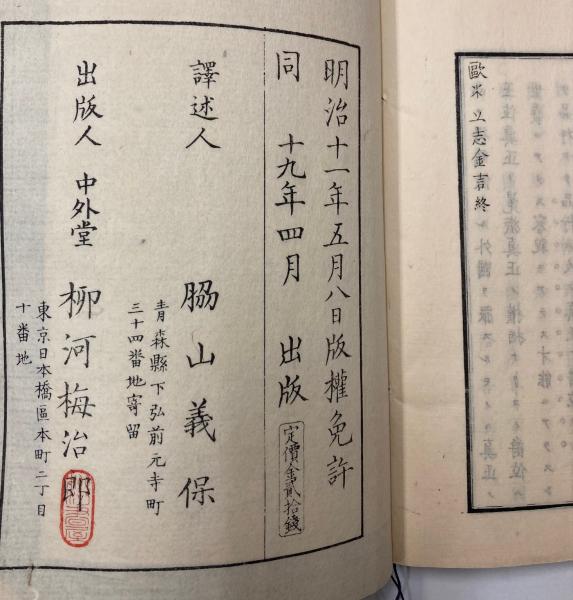 歐米立志金言終
明治十一年五月八日版權免許
同 十九年四月 出版
定價金貳拾錢
譯述人 脇山義保
青森縣下弘前元寺町
三十四番地寄留
出版人 中外堂 柳河梅治郎
東京日本橋區本町二丁目
十番地